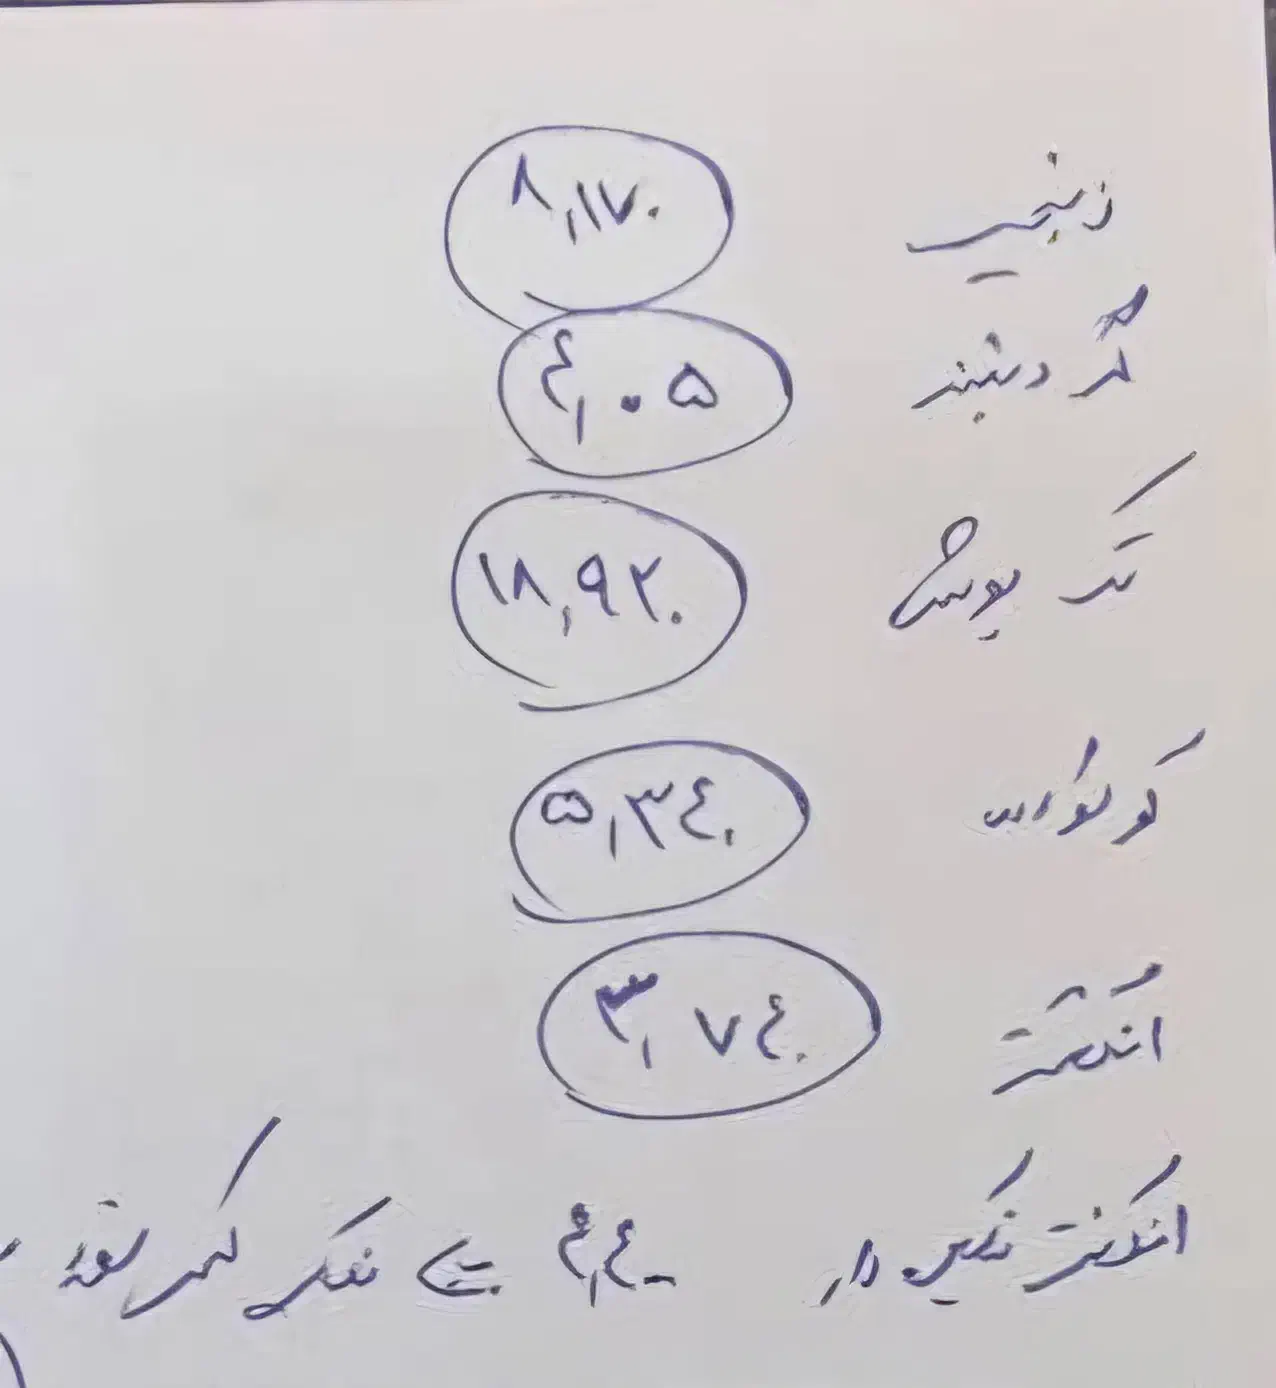 زنجیر ۸,۱۷۰
گردنبند ۴,۰۵
تک پوش ۱۸,۹۲۰
گوشواره ۵,۳۴۰
انگشتر ۳,۷۴۰
انگشتر نگین دار ۴,۴۰۰